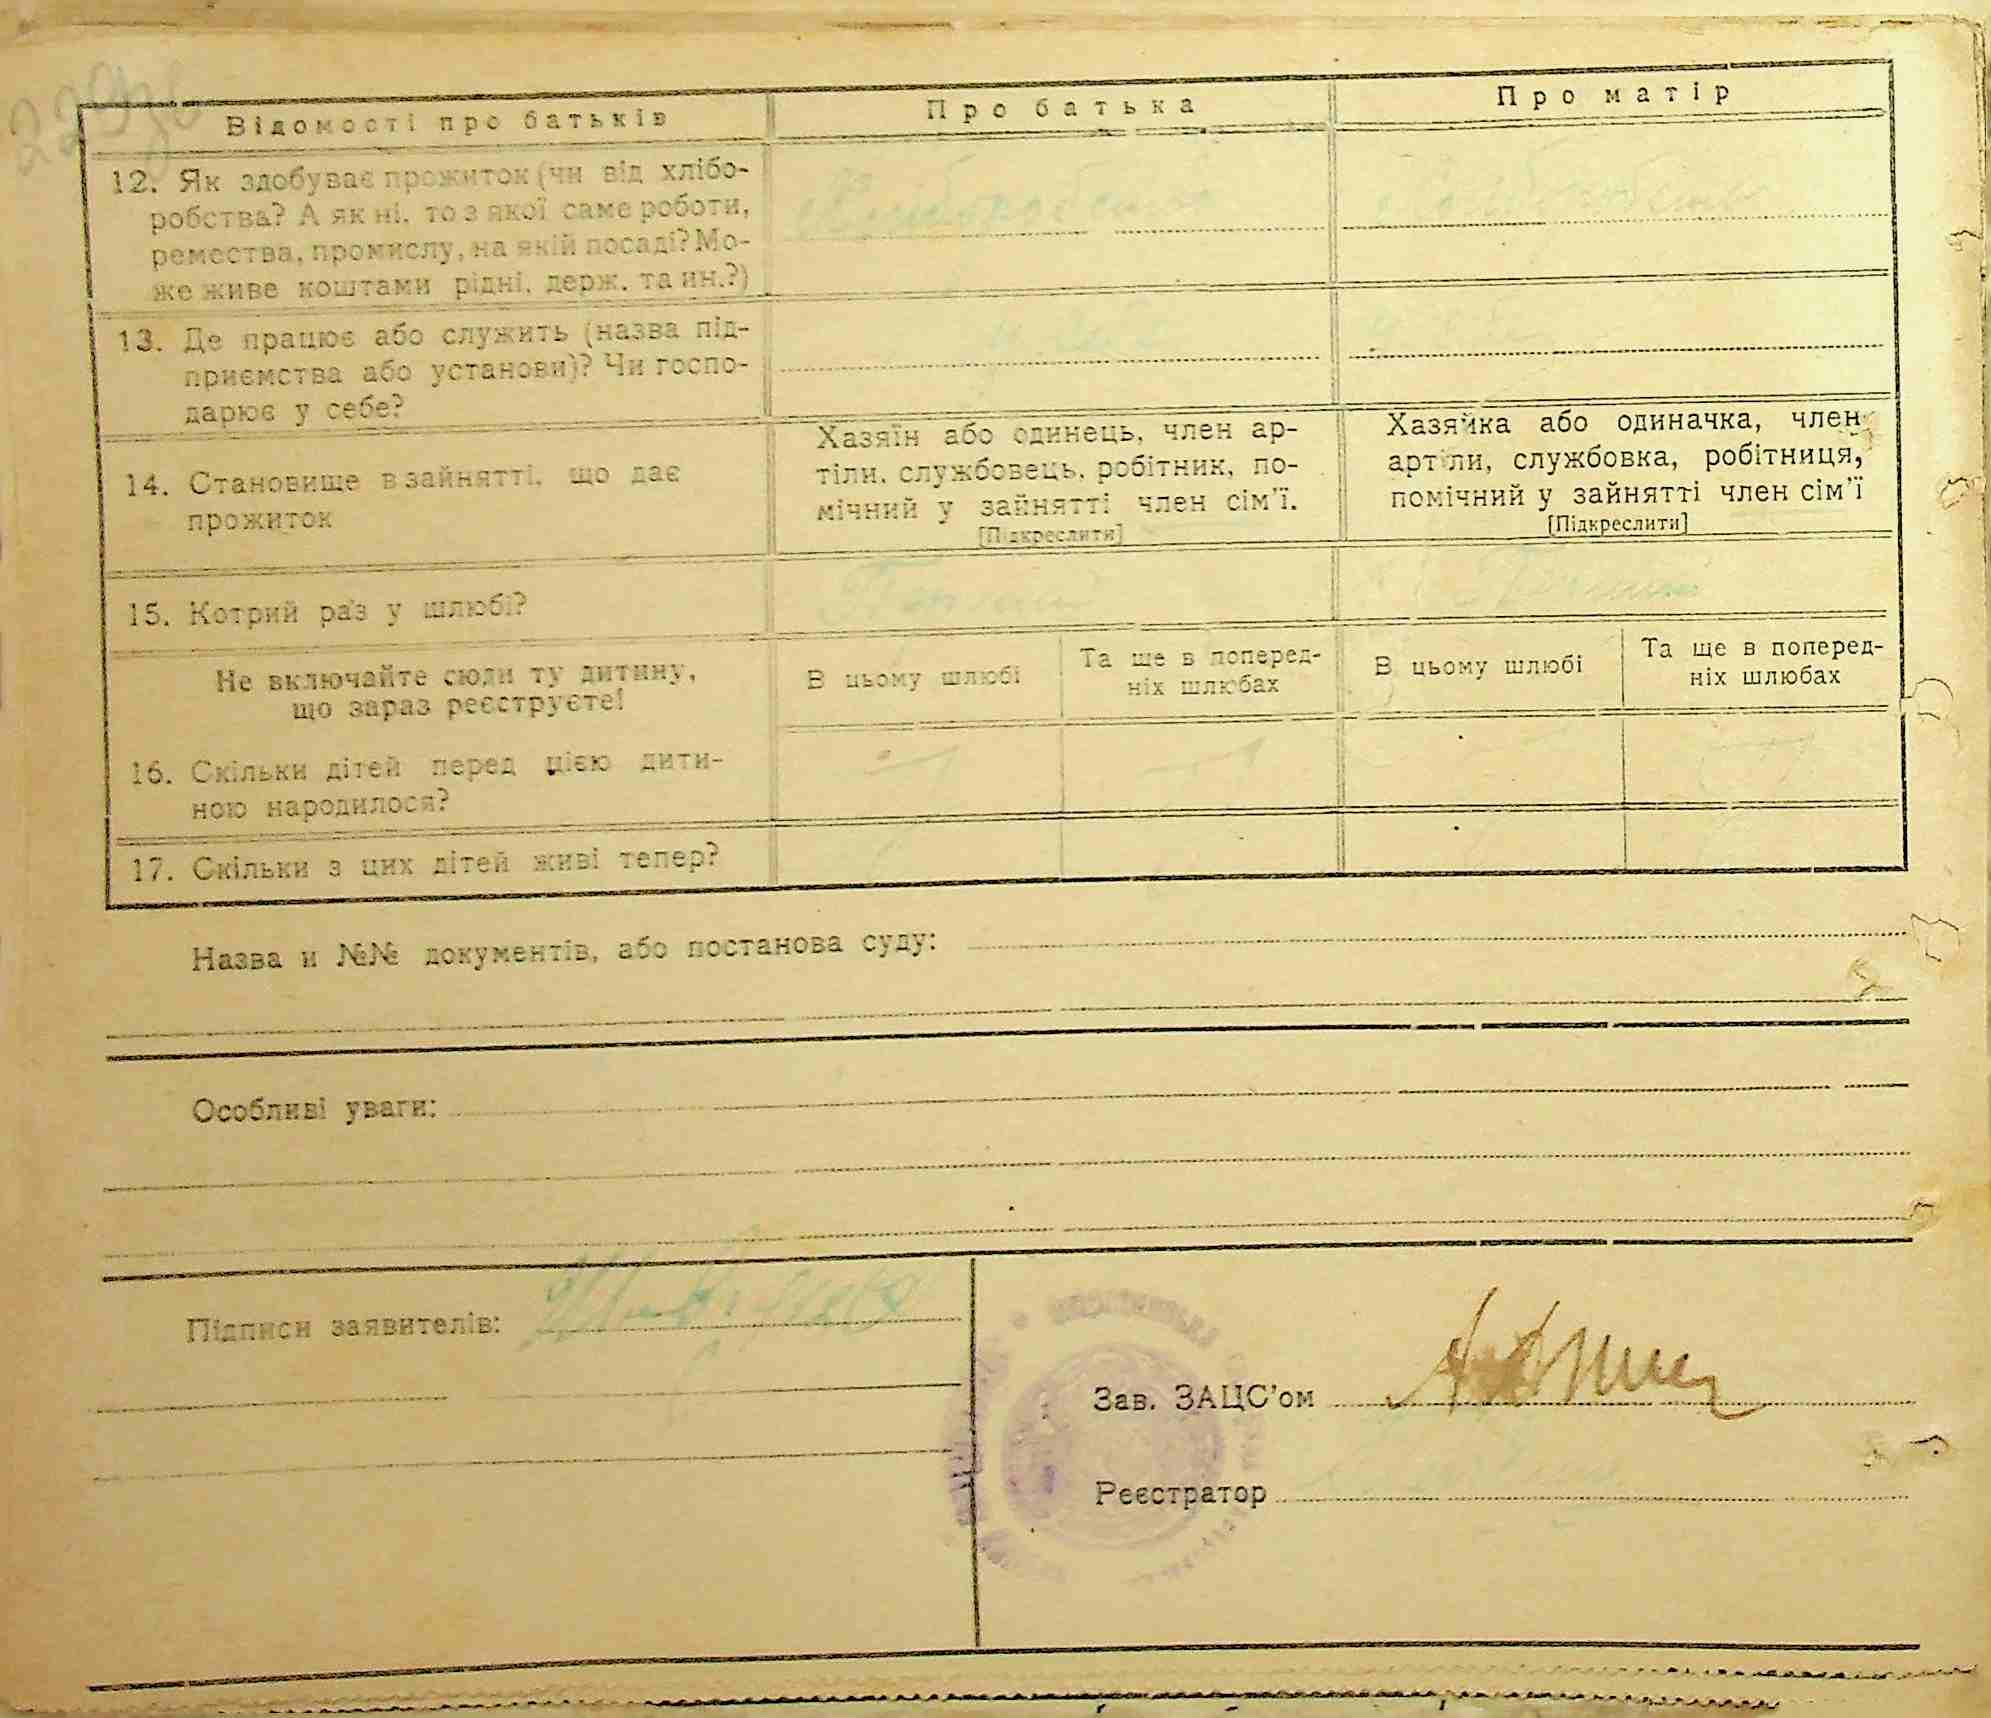 Відомості про батьків
Про батька
Про матір
12. Як здобуває прожиток (чи від хлібо-
робства? А як ні, то з якої саме роботи,
ремества, промислу, на якій посаді? Мо-
же живе коштами рідні, держ. та ин.?)
13. Де працює або служить (назва під-
приємства або установи)? Чи госпо-
дарює у себе?
14. Становище в зайнятті, що дає
прожиток
Хазяїн або одинець, член ар-
тіли, службовець, робітник, по-
мічний у зайнятті член сім'ї.
[Підкреслити]
Хазяйка або одиначка, член
артіли, службовка, робітниця,
помічний у зайнятті член сім'ї
[Підкреслити]
15. Котрий раз у шлюбі?
Не включайте сюди ту дитину,
що зараз реєструєте!
В цьому шлюбі
Та ще в поперед-
ніх шлюбах
В цьому шлюбі
Та ще в поперед-
ніх шлюбах
16. Скільки дітей перед цією дити-
ною народилося?
17. Скільки з цих дітей живі тепер?
Назва и №№ документів, або постанова суду:
Особливі уваги:
Підписи заявителів:
Зав. ЗАЦС'ом
Реєстратор